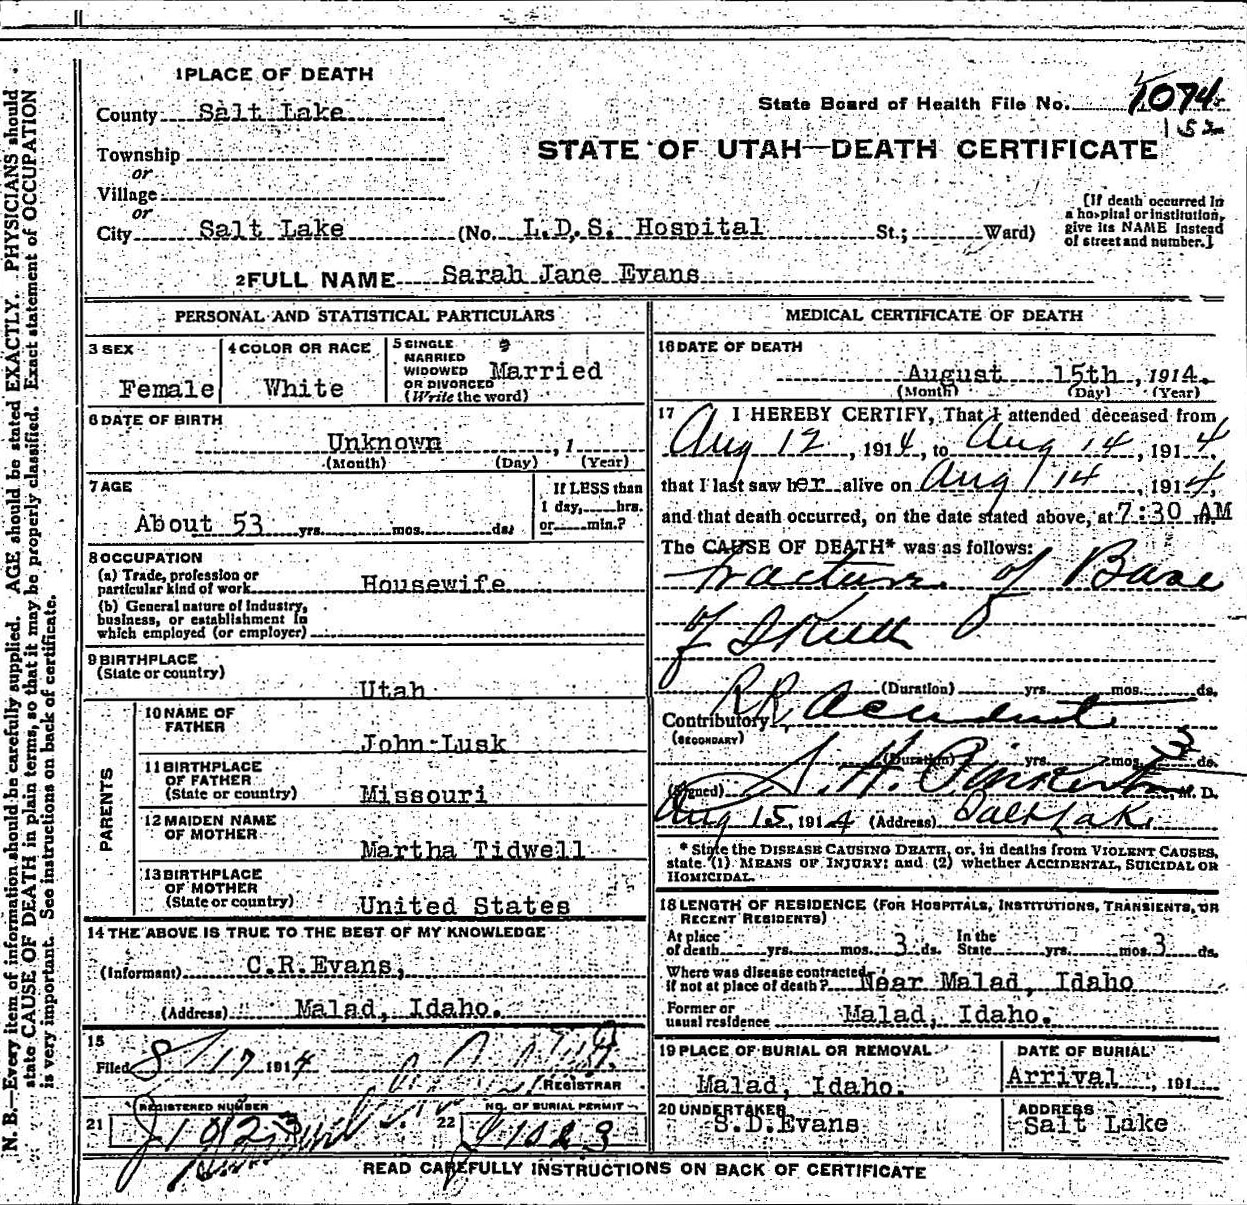 1 PLACE OF DEATH
County Salt Lake
State Board of Health File No. 1074
152
Township
or
Village
or
City Salt Lake (No. L.D.S. Hospital St.; Ward)
STATE OF UTAH—DEATH CERTIFICATE
[If death occurred in
a hospital or institution,
give its NAME instead
of street and number.]
2 FULL NAME Sarah Jane Evans
PERSONAL AND STATISTICAL PARTICULARS
3 SEX
Female
4 COLOR OR RACE
White
5 SINGLE
MARRIED
WIDOWED
OR DIVORCED
(Write the word)
Married
6 DATE OF BIRTH
Unknown , 1
(Month) (Day) (Year)
7 AGE
About 53 yrs. mos. ds.
If LESS than
1 day, hrs.
or min.?
8 OCCUPATION
(a) Trade, profession or
particular kind of work Housewife
(b) General nature of industry,
business, or establishment in
which employed (or employer)
9 BIRTHPLACE
(State or country)
Utah
PARENTS
10 NAME OF
FATHER
John Lusk
11 BIRTHPLACE
OF FATHER
(State or country) Missouri
12 MAIDEN NAME
OF MOTHER
Martha Tidwell
13 BIRTHPLACE
OF MOTHER
(State or country) United States
14 THE ABOVE IS TRUE TO THE BEST OF MY KNOWLEDGE
(Informant) C.R.Evans,
(Address) Malad, Idaho.
15
Filed 8/17 1914
REGISTRAR
21 REGISTERED NUMBER
J1023
22 NO. OF BURIAL PERMIT
J1023
MEDICAL CERTIFICATE OF DEATH
16 DATE OF DEATH
August 15th , 1914.
(Month) (Day) (Year)
17 I HEREBY CERTIFY, That I attended deceased from
Aug 12 , 1914, to Aug 14 , 1914
that I last saw her alive on Aug 14 , 1914,
and that death occurred, on the date stated above, at 7:30 AM m.
The CAUSE OF DEATH* was as follows:
Fracture of Base
of Skull
(Duration) yrs. mos. ds.
Contributory RR Accident
(SECONDARY)
(Duration) yrs. mos. 3 ds.
(Signed) S. H. Pinkerton, M. D.
Aug 15, 1914 (Address) Salt Lake
* State the DISEASE CAUSING DEATH, or, in deaths from VIOLENT CAUSES,
state (1) MEANS OF INJURY; and (2) whether ACCIDENTAL, SUICIDAL OR
HOMICIDAL.
18 LENGTH OF RESIDENCE (FOR HOSPITALS, INSTITUTIONS, TRANSIENTS, OR
RECENT RESIDENTS)
At place
of death yrs. mos. 3 ds.
In the
State yrs. mos 3 ds.
Where was disease contracted,
if not at place of death? Near Malad, Idaho
Former or
usual residence Malad, Idaho.
19 PLACE OF BURIAL OR REMOVAL
Malad, Idaho.
DATE OF BURIAL
Arrival , 191
20 UNDERTAKER
S.D.Evans
ADDRESS
Salt Lake
READ CAREFULLY INSTRUCTIONS ON BACK OF CERTIFICATE
N. B.—Every item of information should be carefully supplied. AGE should be stated EXACTLY. PHYSICIANS should
state CAUSE OF DEATH in plain terms, so that it may be properly classified. Exact statement of OCCUPATION
is very important. See instructions on back of certificate.